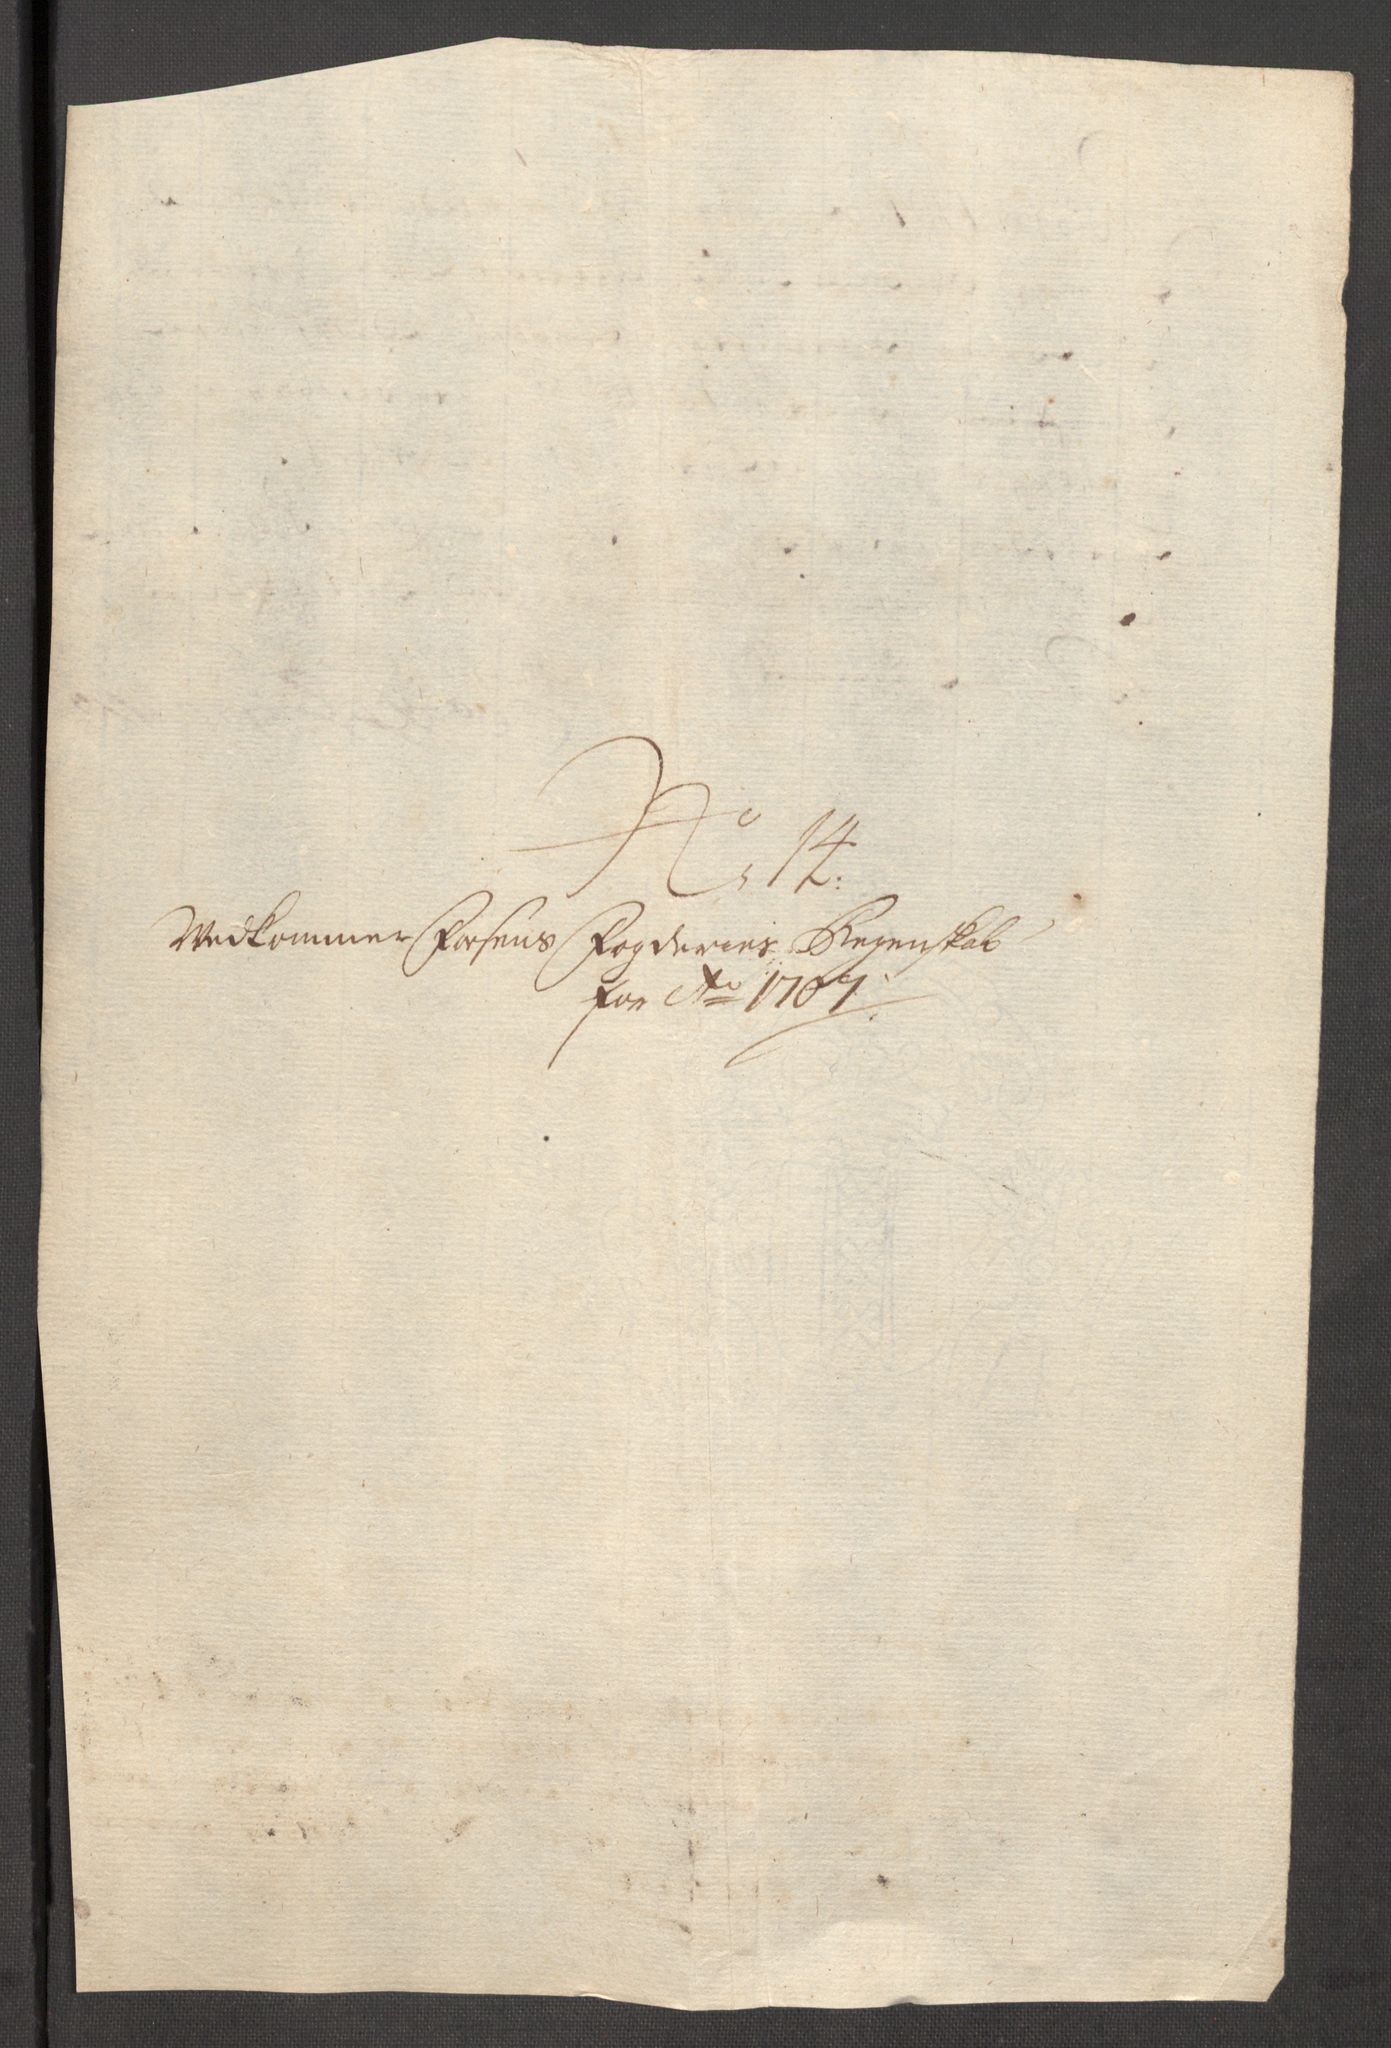 No 14:
Vedkommer Fosens Fogderies Regenskab
for Ao 1707.